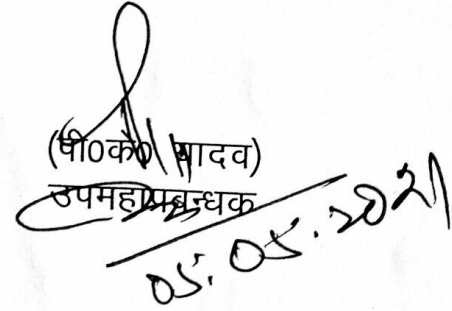 (पी०के० यादव)
उपमहाप्रबन्धक
05.05.2021